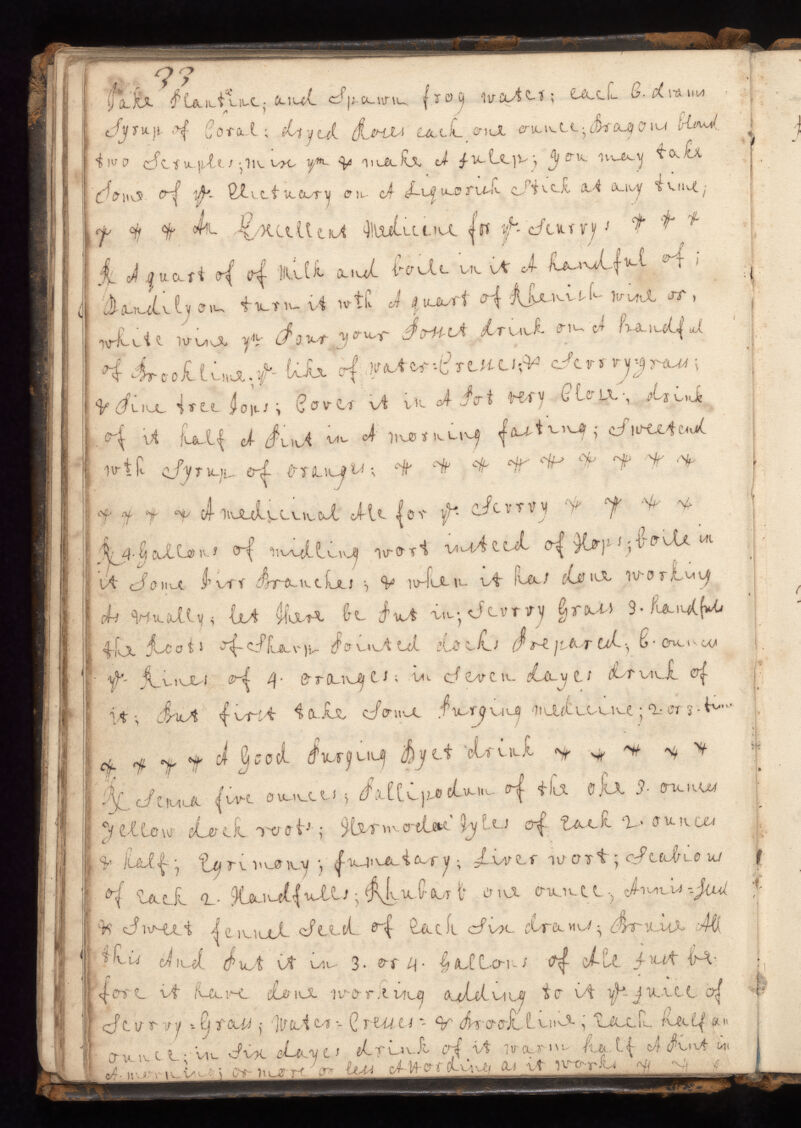 33
Take Plantine; and Spawn frog water; each 6. drams
Syrup of Coral; dryed Roses each one ounce; Dragons bloud
two Scruples; mix ym & make A Julep; you may take
Some of ye Elictuary on A Liquorish Stick at any time;
An Excellent Medicine for ye Scurvy;
R A quart of of Milk and boile in it A handful of;
Dandilyon turn it wth A quart of Rhenish wine or,
white wine yn Pour your Posset drink on A handful
of Brooklime; ye like of water=Cresses; & Scrvvy=grass;
& Pine tree Tops; Cover it in A Pot very Close; drink
of it half A Pint in A morning fasting; Sweetend
wth Syrup of oranges;
A medicinal Ale for ye Scrvvy
R 4. Gallons of midling wort insteed of Hops; boile in
it Some Firr Branches; & when it has done working
As vsually; let there be Put in; Scrvvy Grass 3. handfuls
the Roots of Sharp Pointed docks Prepared; 6. ounces
ye Rines of 4. oranges; in Seven dayes drink of
it; But first take Some Purging medicine; 2. or 3. times
A Good Purging Dyet drink
R Senna five ounces; Pallipodum of the oke 3. ounces
Yellow dock roots; Hermodac Tyles of Each 2. ounces
& half; Egrimony; fumatary; Liver wort; Scabious
of Each 2. Handfulls; Rhubarb one ounce; Annis=Seed
& Sweet fennel Seed of Each Six drams; Bruise All
this And Put it in 3. or 4. Gallons of Ale Just be
fore it have done working adding to it ye juice of
Scrvvy=Grass; Water=Cresses= & Brooklime; Each half an
ounce; in Six dayes drink of it warm half A Pint in
A morning; or more or less Attording as it works